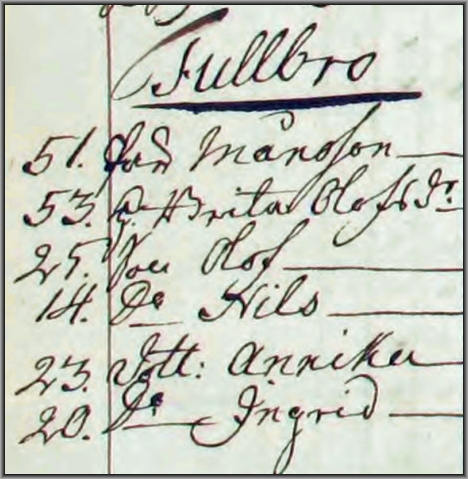 Fullbro
51. Jan Månsson
53. H. Brita Olofsdr.
25. Son Olof
14. Do Nils
23. Dott: Annika
20. Do Ingrid